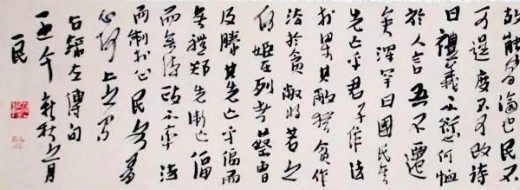 故能有濟也民不
可逞度不可改詩
曰禮義不愆何恤
於人言吾不遷
矣渾罕曰國氏其
先亡乎君子作法
於涼其敝猶貪作
法於貪敝將若之
何姬在列者蔡曹
及滕其先亡乎偪而
無禮鄭先衛亡偪
而無法政不率法
而制於心民各有
心何上之有
右錄左傳句
壬午新秋月
一民